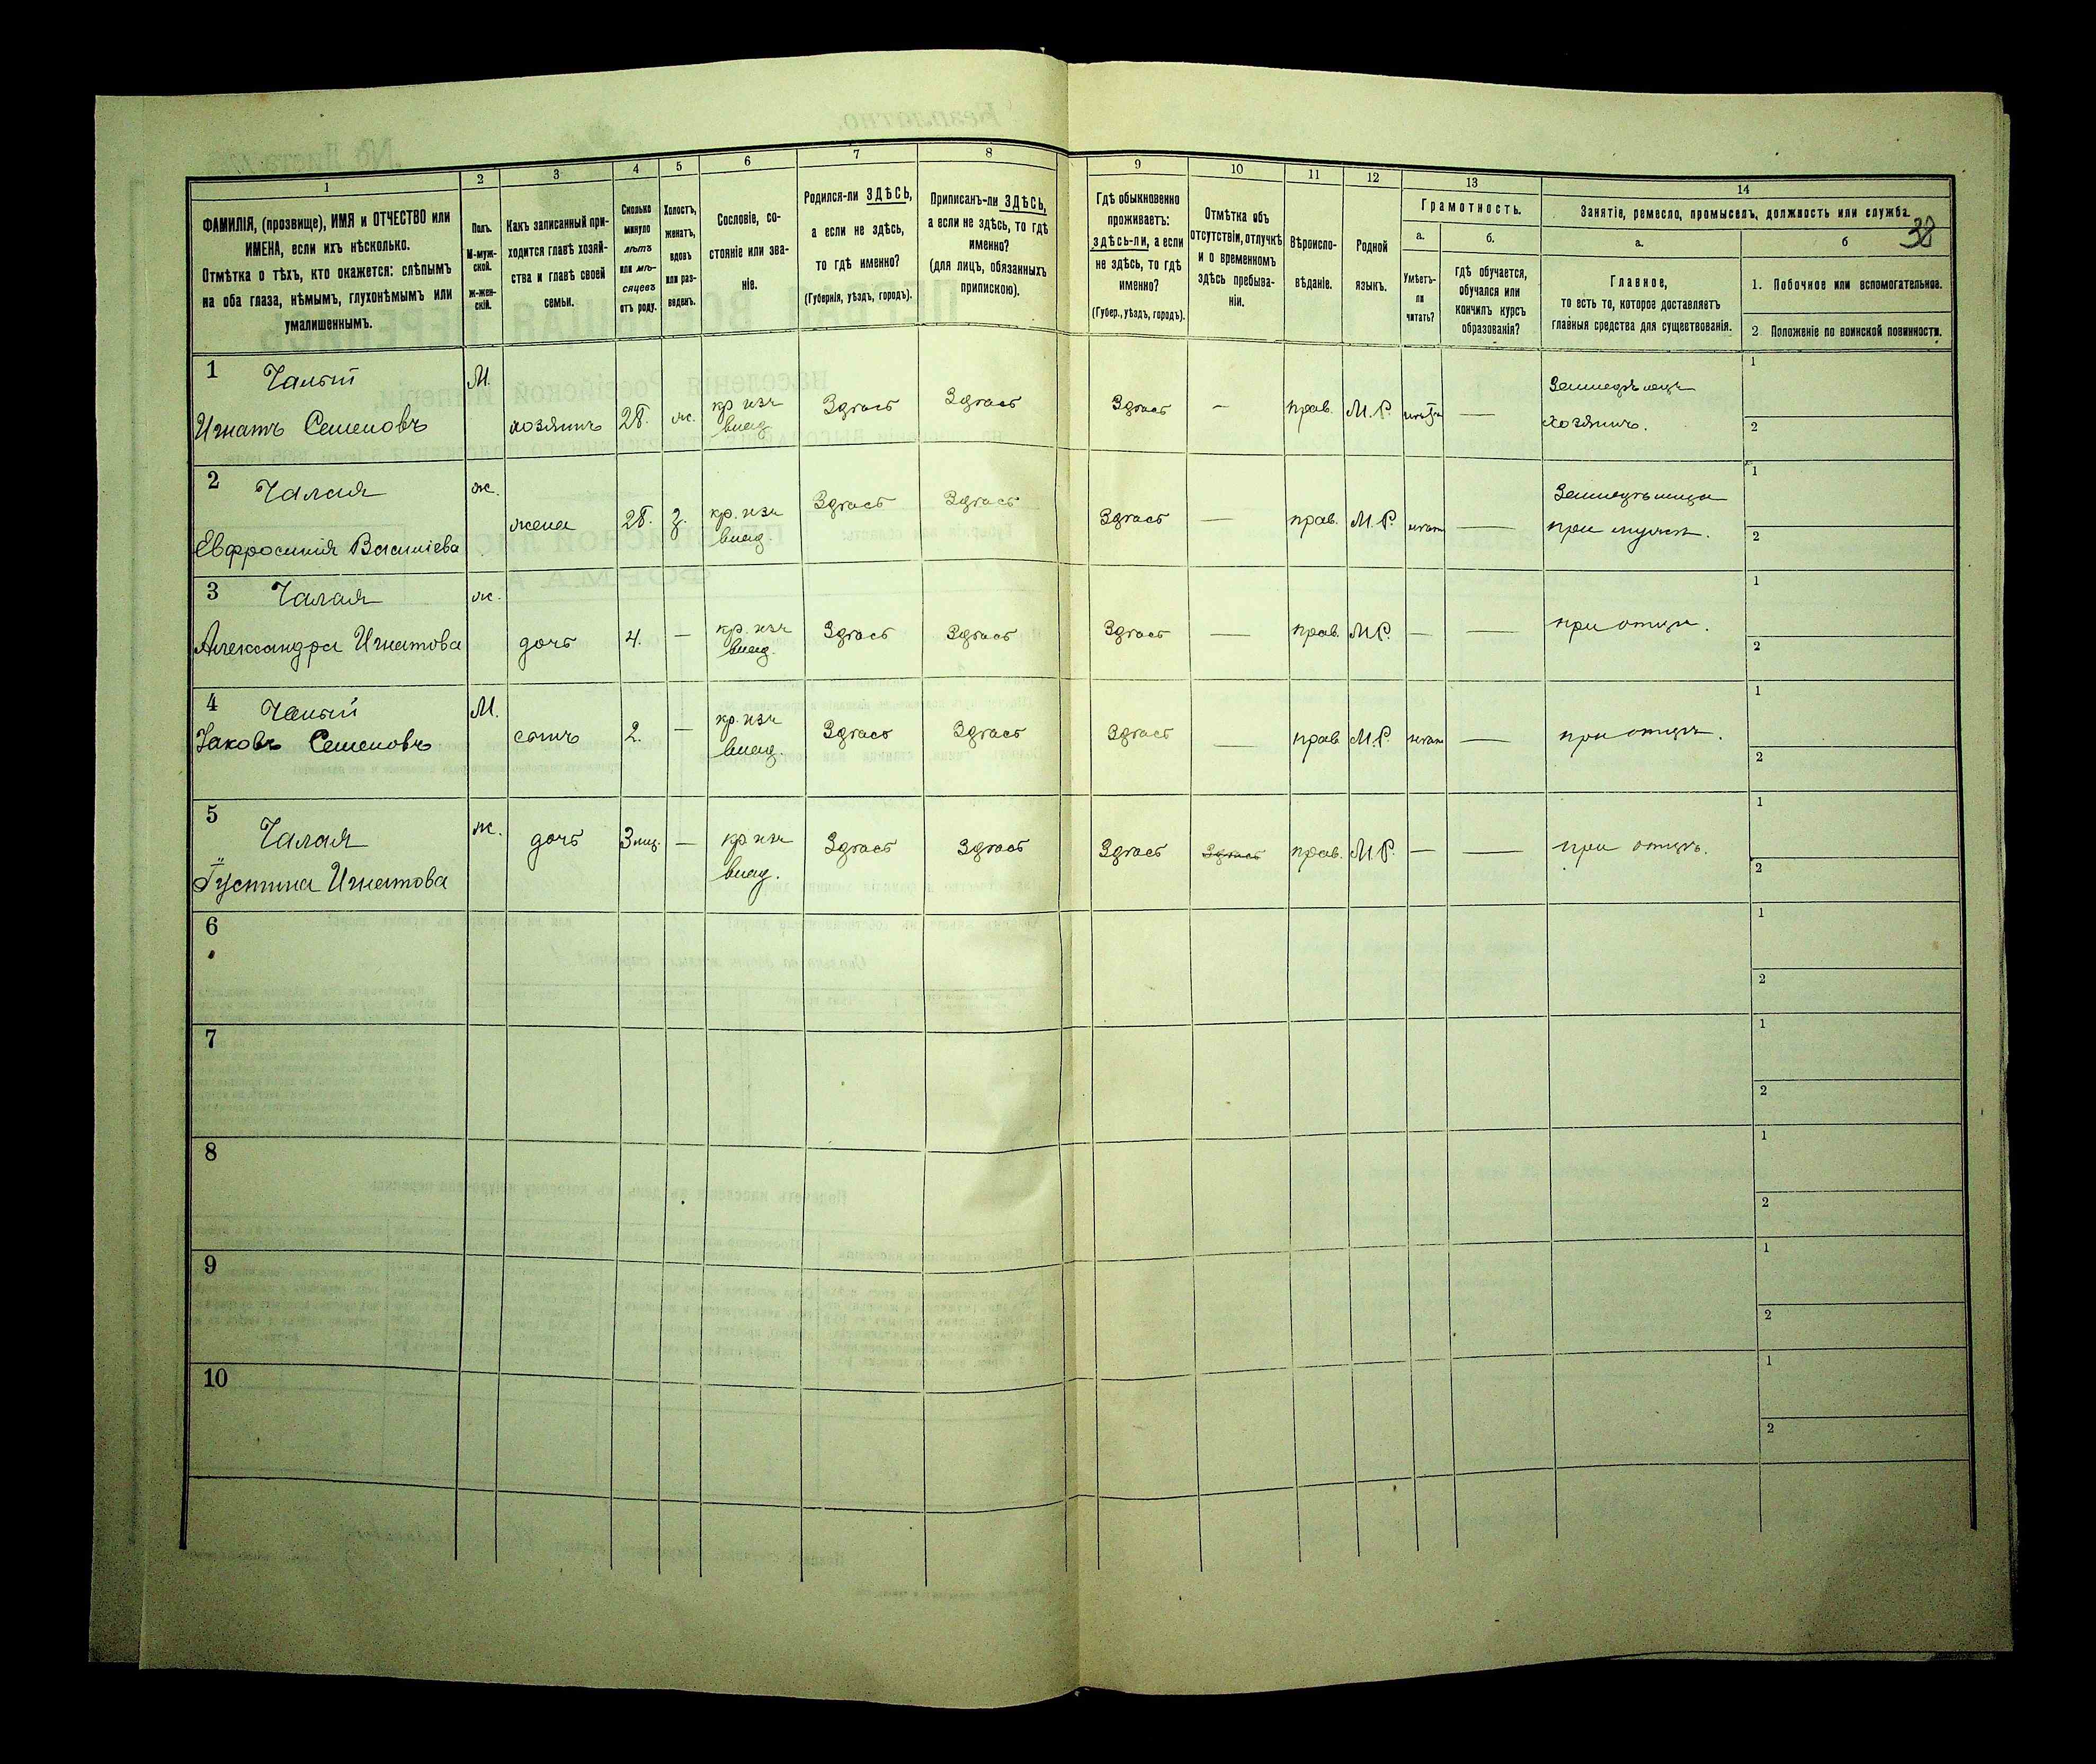 1 2 3 4 5 6 7 8 9 10 11 12 13 14
ФАМИЛІЯ, (прозвище), ИМЯ и ОТЧЕСТВО или
ИМЕНА, если ихъ нѣсколько.
Отмѣтка о тѣхъ, кто окажется: слѣпымъ
на оба глаза, нѣмымъ, глухонѣмымъ или
умалишеннымъ.
Полъ.
М-муж-
ской.
Ж-жен-
скій.
Какъ записанный при-
ходится главѣ хозяй-
ства и главѣ своей
семьи.
Сколько
минуло
лѣтъ
или мѣ-
сяцевъ
отъ роду.
Холостъ,
женатъ,
вдовъ
или раз-
веденъ.
Сословіе, со-
стояніе или зва-
ніе.
Родился-ли ЗДѢСЬ,
а если не здѣсь,
то гдѣ именно?
(Губернія, уѣздъ, городъ).
Приписанъ-ли ЗДѢСЬ,
а если не здѣсь, то гдѣ
именно?
(для лицъ, обязанныхъ
припискою).
Гдѣ обыкновенно
проживаетъ:
здѣсь-ли, а если
не здѣсь, то гдѣ
именно?
(Губер., уѣздъ, городъ).
Отмѣтка объ
отсутствіи, отлучкѣ
и о временномъ
здѣсь пребыва-
ніи.
Вѣроиспо-
вѣданіе.
Родной
языкъ.
Грамотность.
а.
Умѣетъ-
ли
читать?
б.
гдѣ обучается,
обучался или
кончилъ курсъ
образованія?
Занятіе, ремесло, промыселъ, должность или служба.
38
а.
Главное,
то есть то, которое доставляетъ
главныя средства для существованія.
б
1. Побочное или вспомогательное.
2 Положеніе по воинской повинности.
1 Чалый М. Земледѣлецъ 1
Игнатъ Семеновъ хозяинъ 28. ж. кр. изъ влад. Здѣсь Здѣсь Здѣсь — прав. М.Р. — хозяинъ. 2
2 Чалая ж. Земледѣлица 1
Евфросинія Василіева жена 28. з. кр. изъ влад. Здѣсь Здѣсь Здѣсь — прав. М.Р. — при мужѣ. 2
3 Чалая ж. 1
Александра Игнатова дочь 4. — кр. изъ влад. Здѣсь Здѣсь Здѣсь — прав. М.Р. — — при отцѣ. 2
4 Чалый М. 1
Іаковъ Семеновъ сынъ 2. — кр. изъ влад. Здѣсь Здѣсь Здѣсь — прав. М.Р. — при отцѣ. 2
5 Чалая ж. дочь 3 мѣс. — кр. изъ влад. Здѣсь Здѣсь Здѣсь Здѣсь прав. М.Р. — — при отцѣ. 1
Густина Игнатова 2
6 1
2
7 1
2
8 1
2
9 1
2
10 1
2